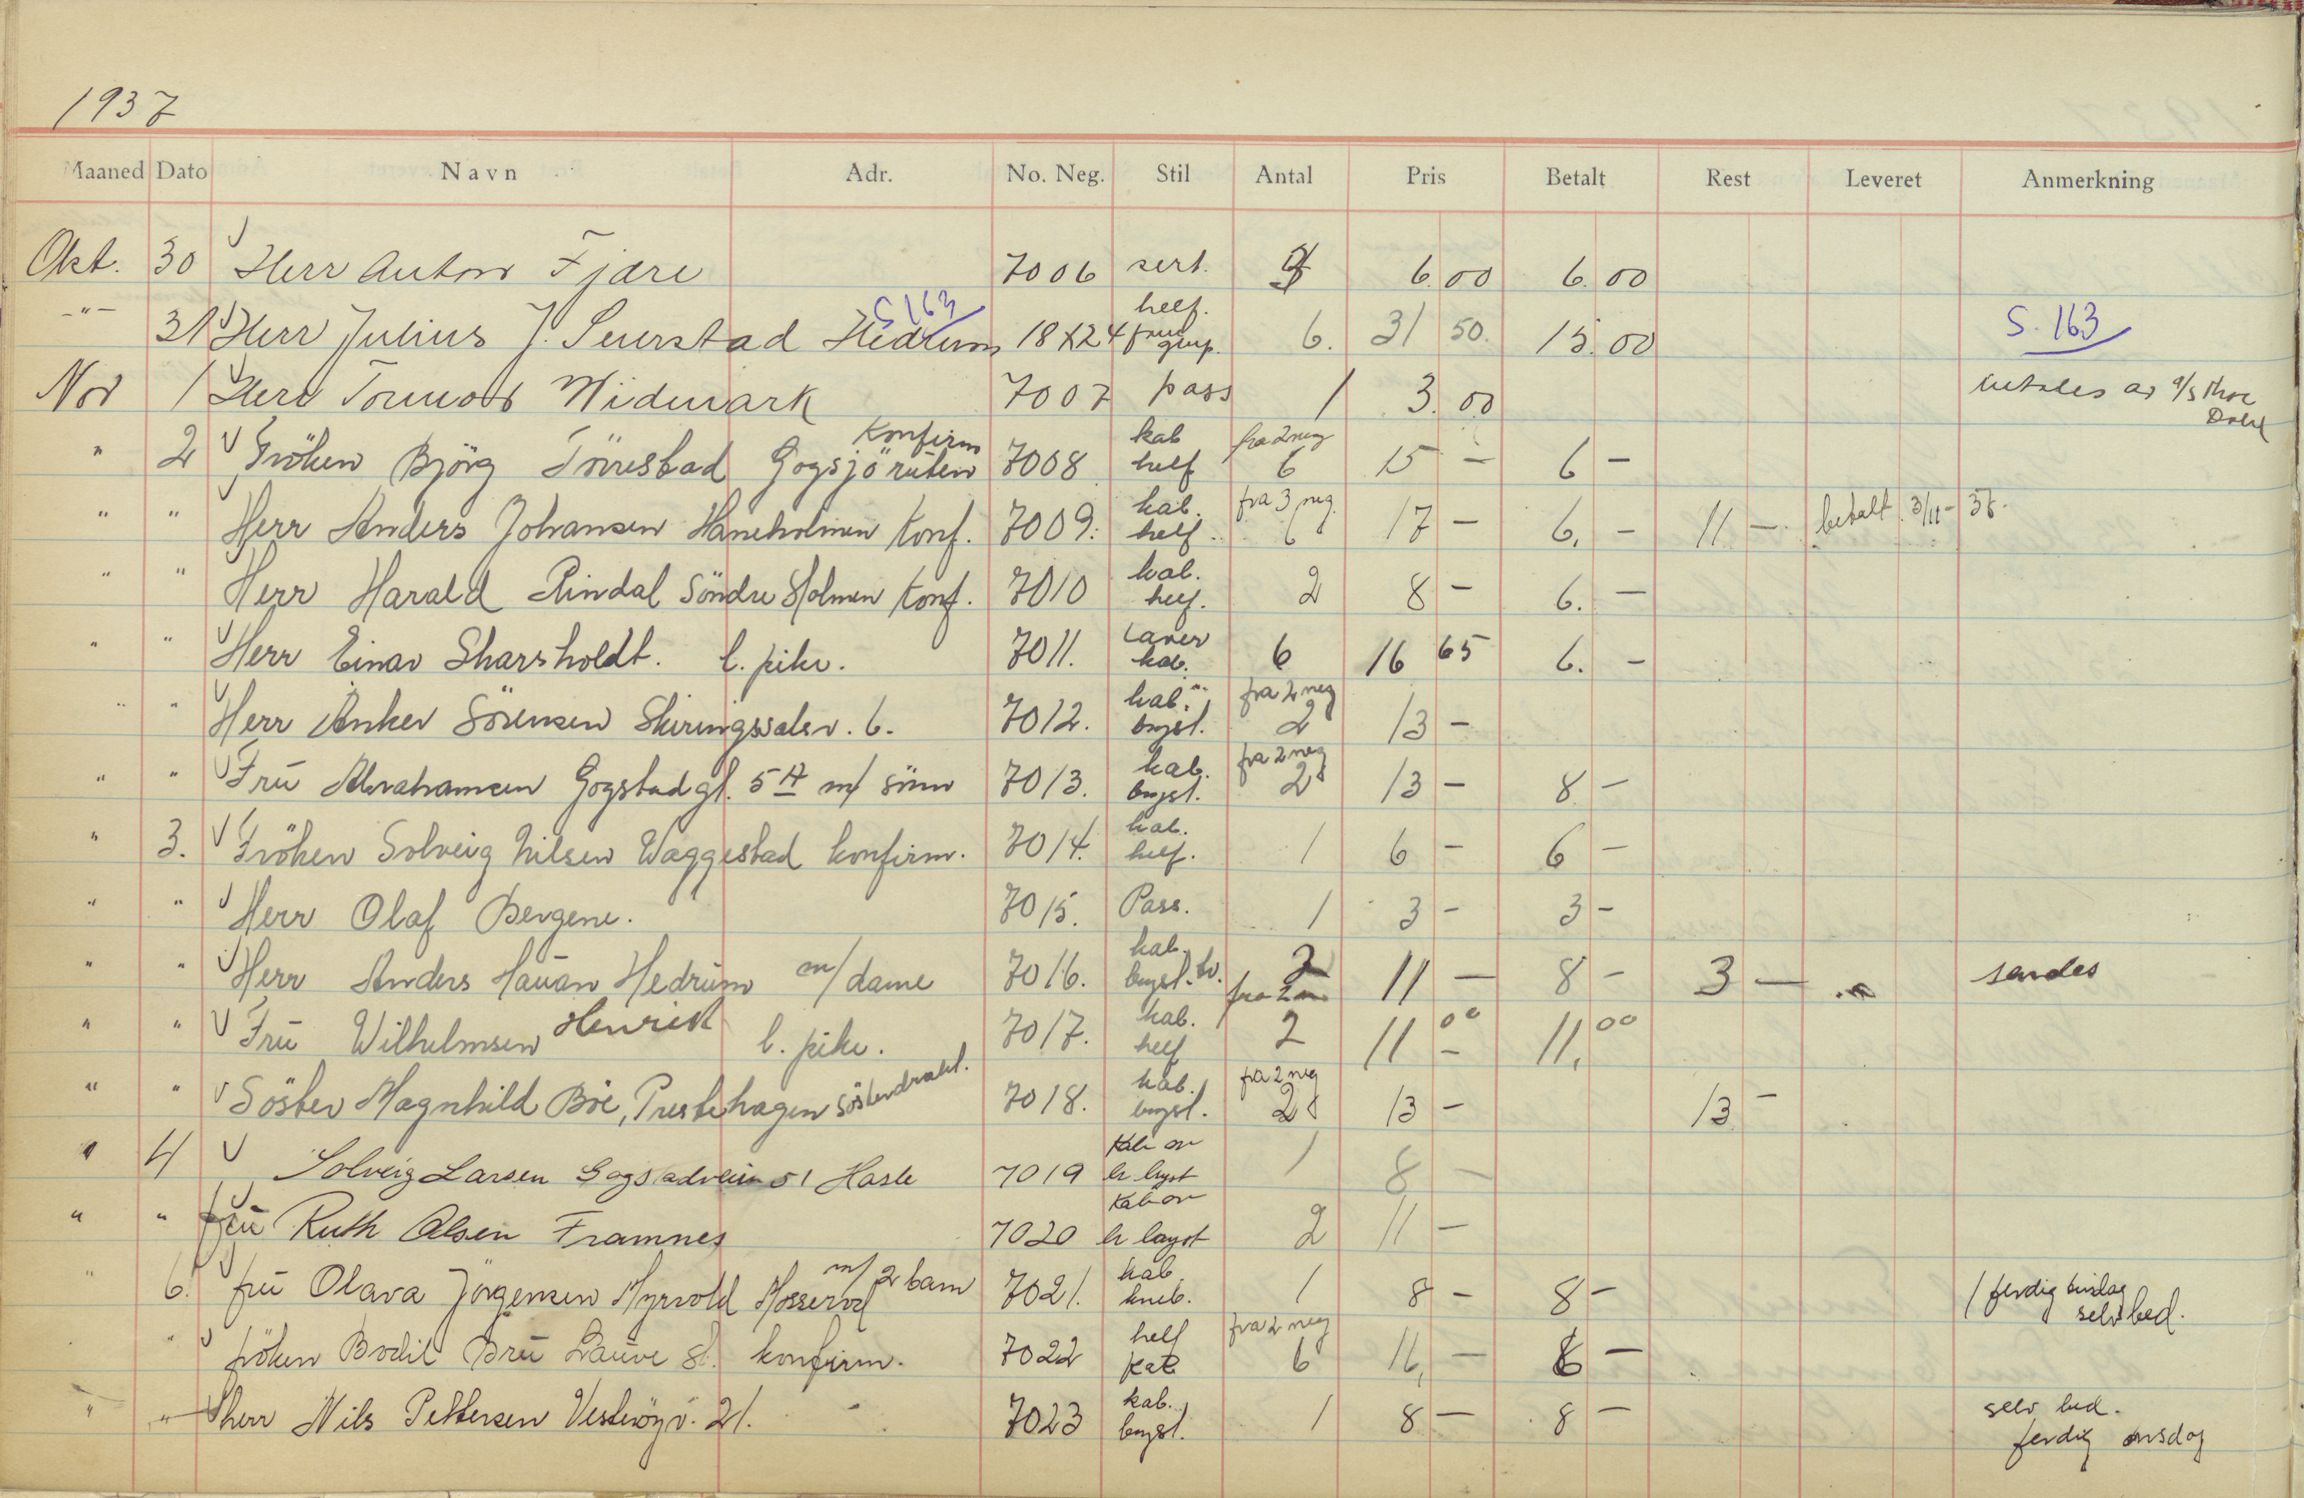 1937
Maaned Dato Navn Adr. No. Neg. Stil Antal Pris Betalt Rest Leveret Anmerkning
Okt. 30 Herr Anton Fjære 7006 sert. 6.00 6.00
-"- 31 Herr Julius J. Seierstad Hedrum S 163 18x24 helf. grup. 6. 31 50. 15.00 S. 163
Nov 1 Herr Tormod Widmark 7007 pass 1 3.00 betales av a/s Thor Dahl
" 2 Fröken Björg Törrestad Gogsjöruten Konfirm 7008 kab helf fra 2 neg 6 15 - 6 -
" " Herr Anders Johansen Haneholmen Konf. 7009. kab. helf. fra 3 neg. 6 17 - 6. - 11 - betalt 3/11-37.
" " Herr Harald Rindal Söndre Holmen Konf. 7010 kab. helf. 2 8 - 6. -
" " Herr Einar Skarsholdt. l. pike. 7011. kab. 6 16 65 6. -
" " Herr Anker Sörensen Skiringssalsv. 6. 7012. kab. bryst. fra 2 neg 2 13 -
" " Frü Abrahamsen Gogstadgt. 5 A m/ sönn 7013. kab. bryst. fra 2 neg 2 13 - 8 -
" 3. Fröken Solveig Nilsen Waggestad konfirm. 7014. kab. helf. 1 6 - 6 -
" " Herr Olaf Bergene. 7015. Pass. 1 3 - 3 -
" " Herr Anders Haüan Hedrüm m/ dame 7016. kab. bryst. 2 fra 2 11 - 8 - 3 - sendes
" " Frü Wilhelmsen Henrik l. pike. 7017. kab. helf 2 11 00 - 11, 00
" " Söster Magnhild Böe, Prestehagen sösterdrakt. 7018. kab. bryst. fra 2 neg 2 13 - 13 -
" 4 Solveig Larsen Gogstadveien 51 Hasle 7019 Kab br bryst 1 8 -
" " frü Ruth Olsen Framnes 7020 Kab br bryst 2 11 -
" 6. frü Olava Jörgensen Myrvold Mosserød m/ 2 barn 7021. kab. kneb. 1 8 - 8 - ferdig tirsdag selv bed.
" fröken Bodil Brü Laüve st. konfirm. 7022 helf kab fra 2 neg 6 16, - 8 -
" " herr Nils Pettersen Vesteröyv. 21. 7023 kab. bryst. 1 8 - 8 - selv bed. ferdig onsdag